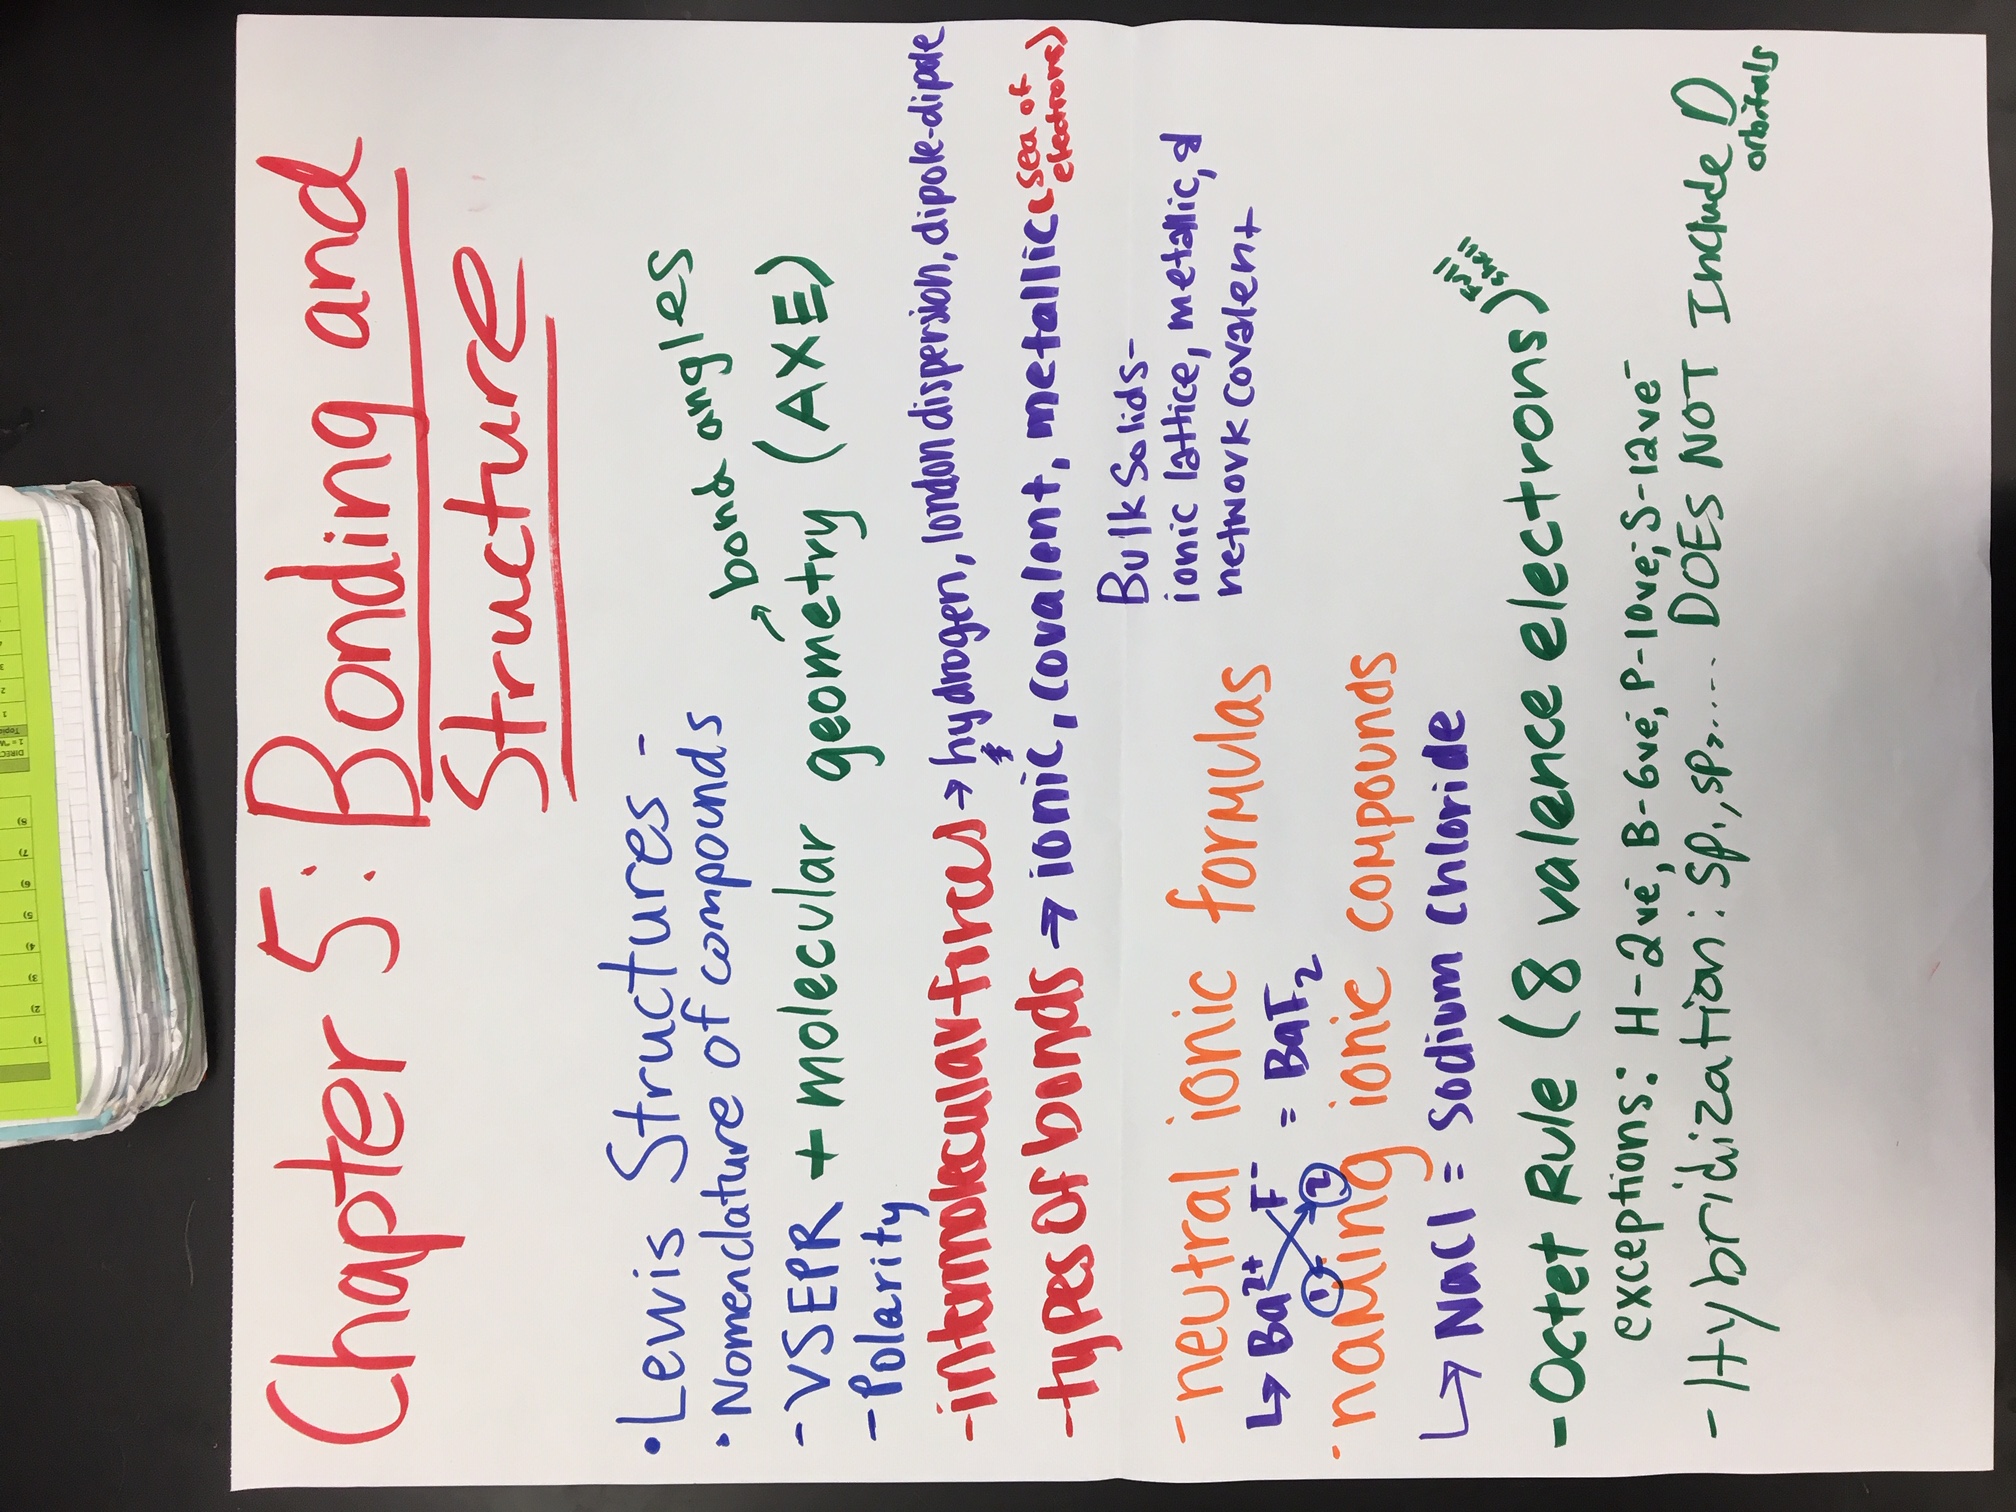 Chapter 5: Bonding and
Structure
• Lewis Structures -
• Nomenclature of compounds
- VSEPR + molecular geometry (AXE)
→ bond angles
- Polarity
- intermolecular forces → hydrogen, london dispersion, dipole-dipole
- types of bonds → ionic, covalent, metallic (sea of
electrons)
Bulk Solids-
ionic lattice, metallic, &
network covalent
- neutral ionic formulas
↳ Ba²⁺ F⁻ = BaF₂
1 2
• naming ionic compounds
↳ NaCl = Sodium Chloride
- Octet Rule (8 valence electrons)
full
shell
exceptions: H-2ve⁻, B-6ve⁻, P-10ve⁻, S-12ve⁻
- Hybridization: sp₁, sp₂,.... DOES NOT Include D
orbitals